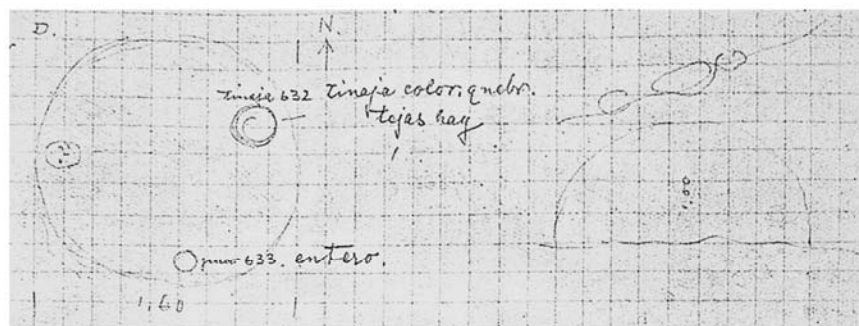 D.
N.
tinaja 632 tinaja color. quebr.
tejas hay
633. entero.
1,60
1,60